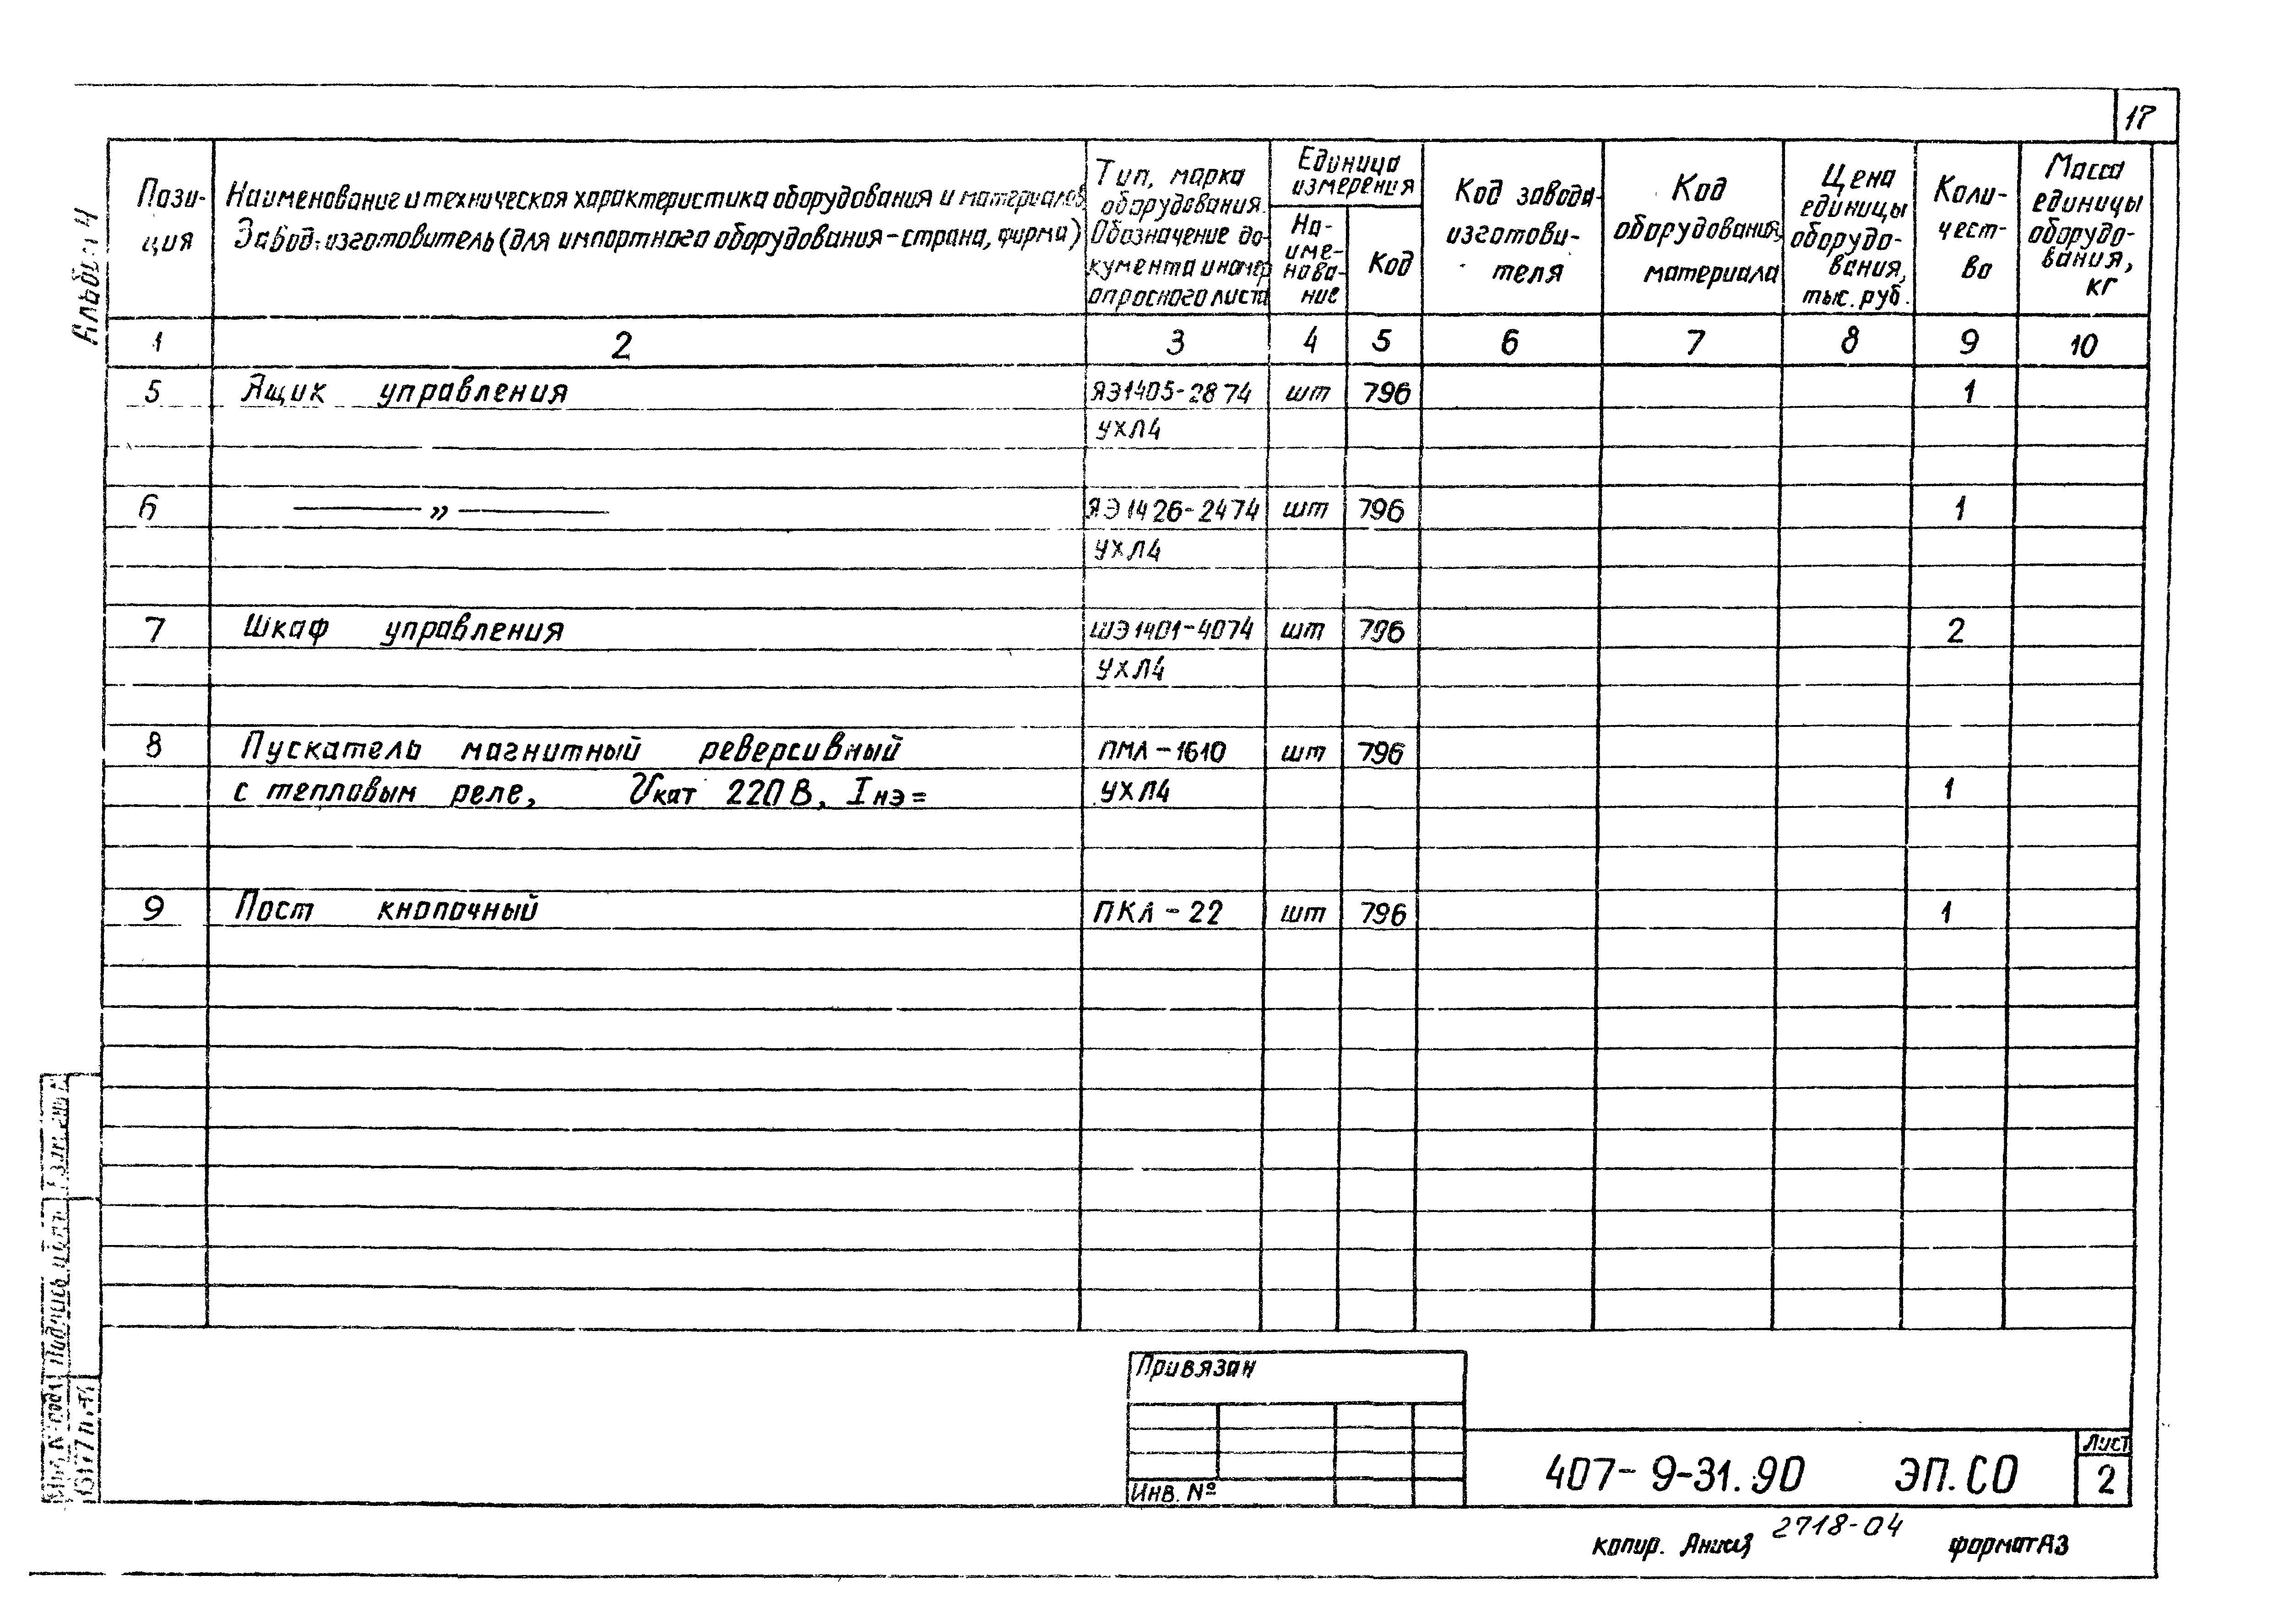 17
Альбом 4
Пози-
ция
Наименование и техническая характеристика оборудования и материалов
Завод-изготовитель (для импортного оборудования-страна, фирма)
Тип, марка
оборудования.
Обозначение до-
кумента и номер
опросного листа
Единица
измерения
На-
име-
нова-
ние
Код
Код завода-
изготови-
теля
Код
оборудования,
материала
Цена
единицы
оборудо-
вания,
тыс. руб.
Коли-
чест-
во
Масса
единицы
оборудо-
вания,
кг
1 2 3 4 5 6 7 8 9 10
5 Ящик управления ЯЭ1405-2874 шт 796 1
УХЛ4
6 —— " —— ЯЭ1426-2474 шт 796 1
УХЛ4
7 Шкаф управления ШЭ1401-4074 шт 796 2
УХЛ4
8 Пускатель магнитный реверсивный ПМЛ-1610 шт 796
с тепловым реле, Uкат 220В, Iнэ= УХЛ4 1
9 Пост кнопочный ПКЛ-22 шт 796 1
Привязан
Инв. №
407-9-31.90 ЭП.СО
Лист
2
копир. 2718-04 формат А3
Подпись и дата
Инв. № подл.